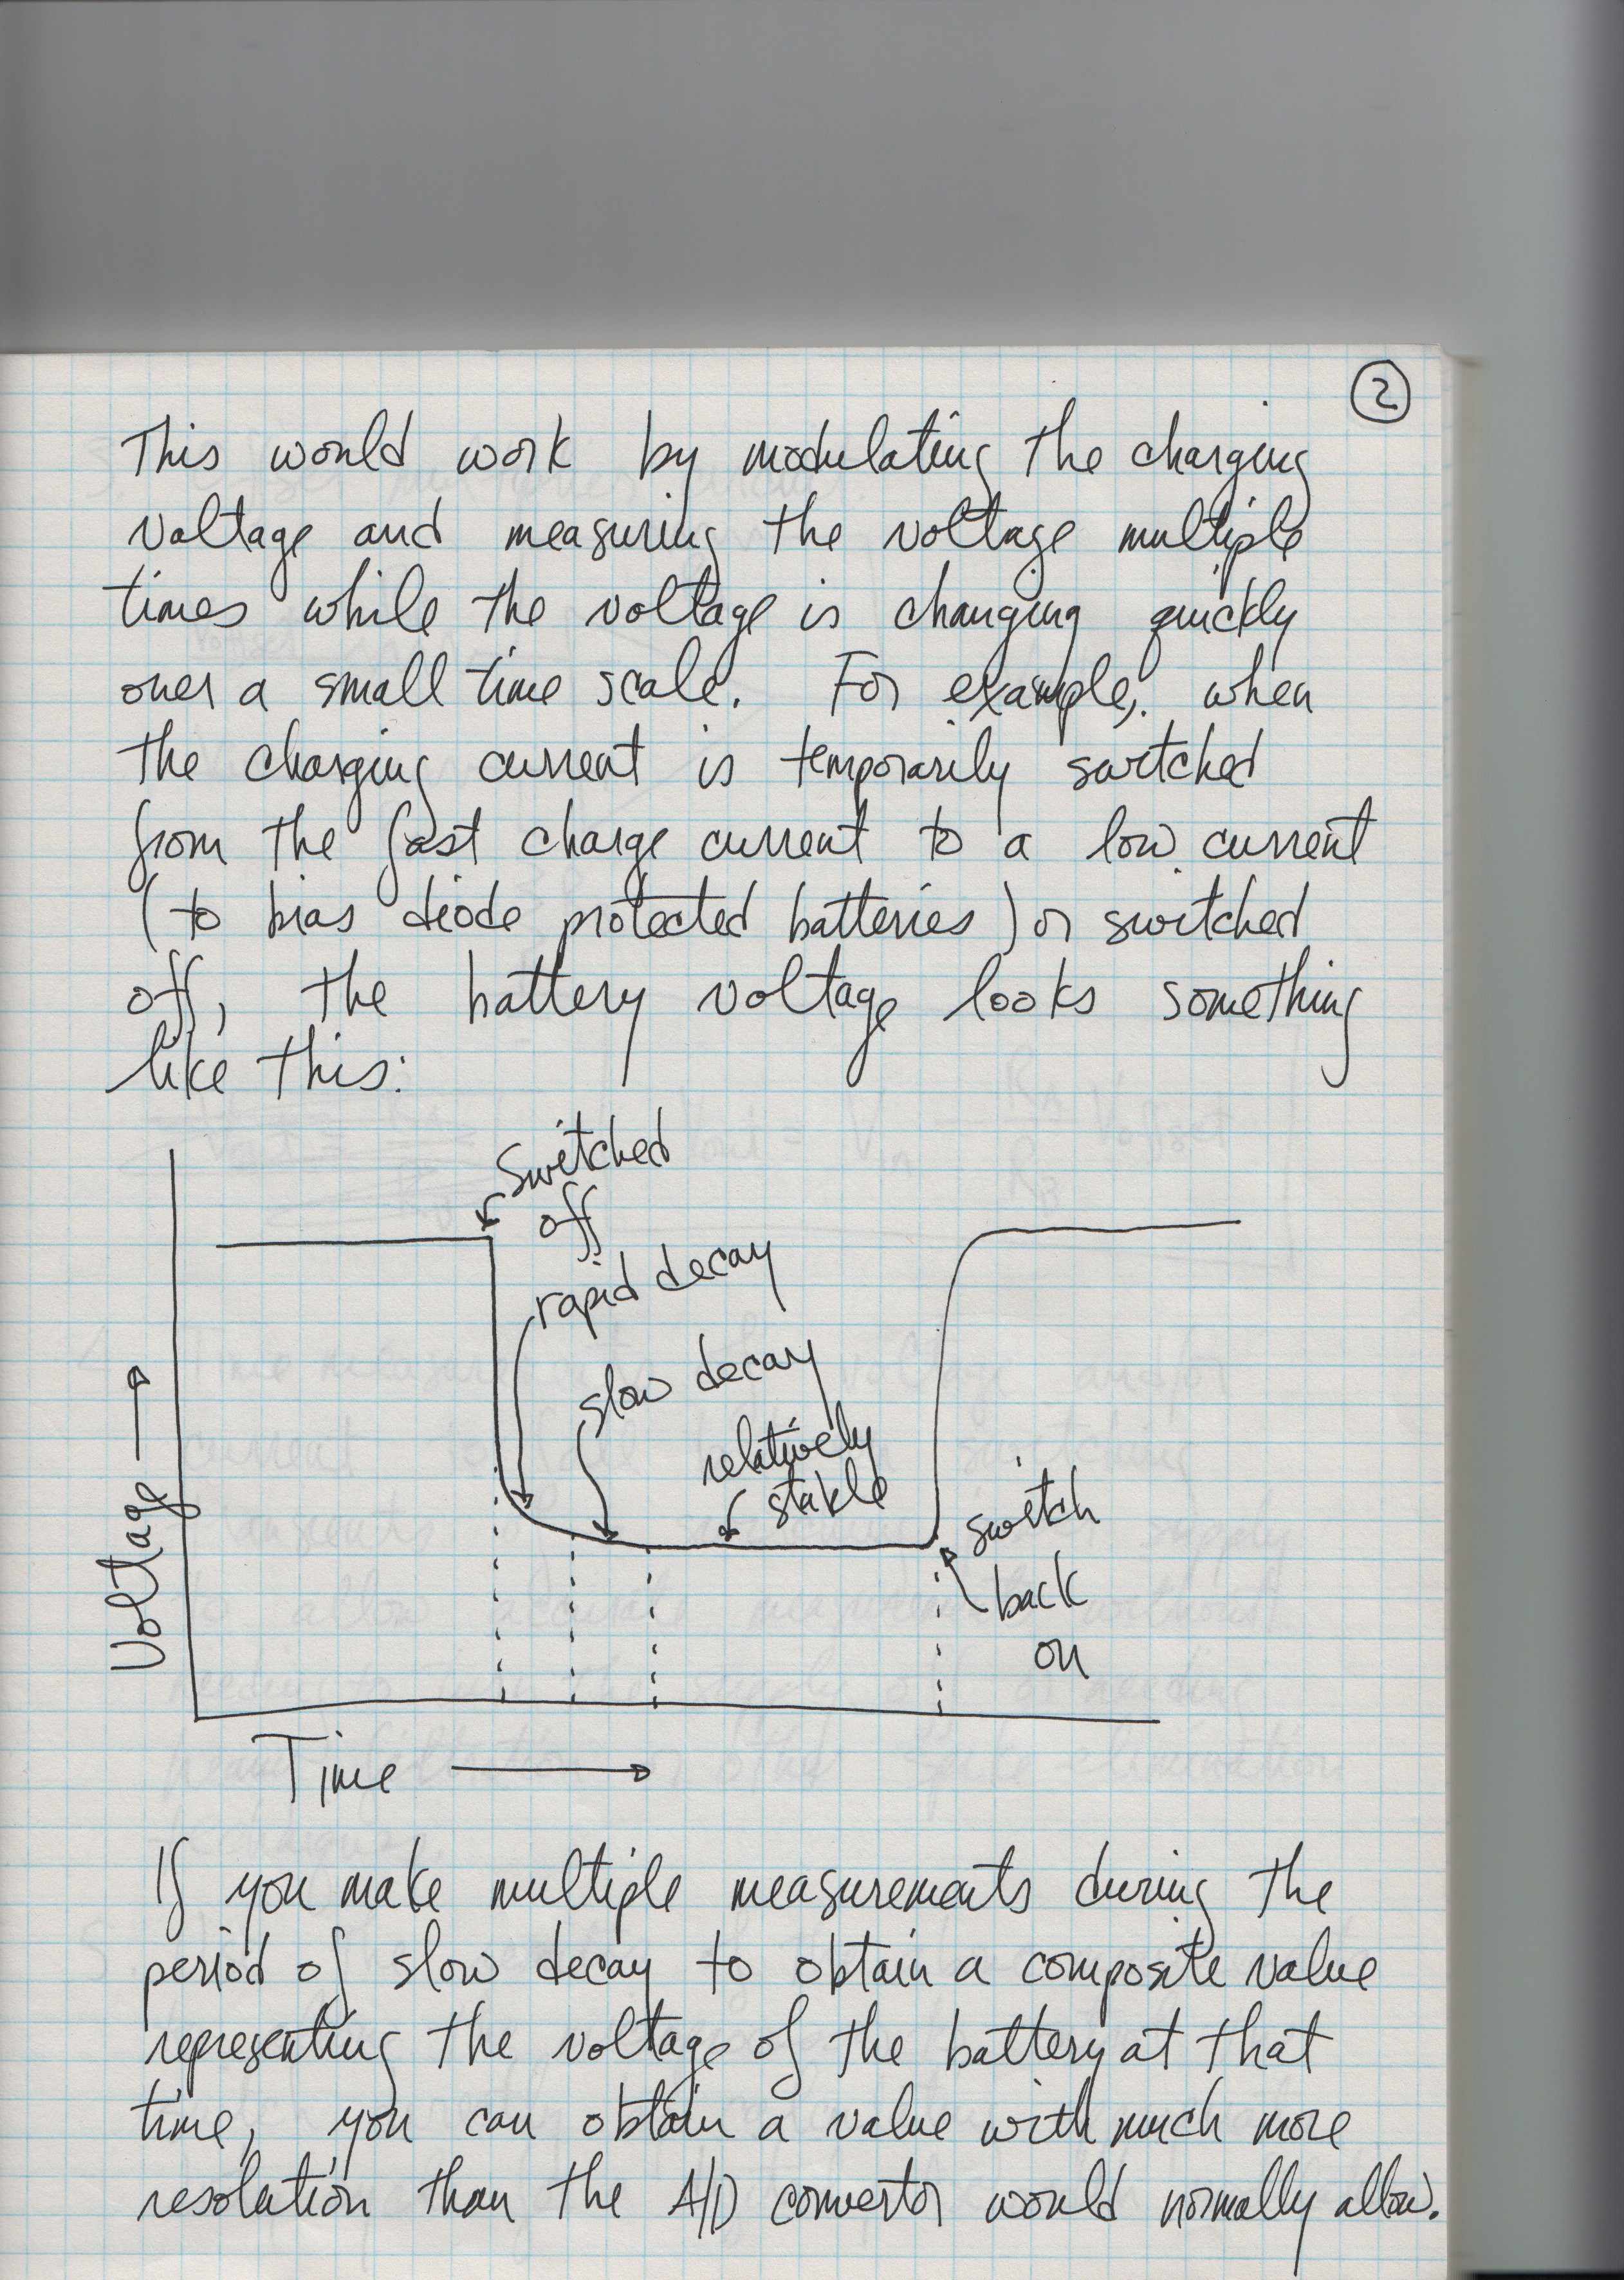 2
This would work by modulating the charging
voltage and measuring the voltage multiple
times while the voltage is changing quickly
over a small time scale. For example, when
the charging current is temporarily switched
from the fast charge current to a low current
(to bias diode protected batteries) or switched
off, the battery voltage looks something
like this:
Switched
off
rapid decay
slow decay
relatively
stable
switch
back
on
Voltage
Time
If you make multiple measurements during the
period of slow decay to obtain a composite value
representing the voltage of the battery at that
time, you can obtain a value with much more
resolution than the A/D convertor would normally allow.